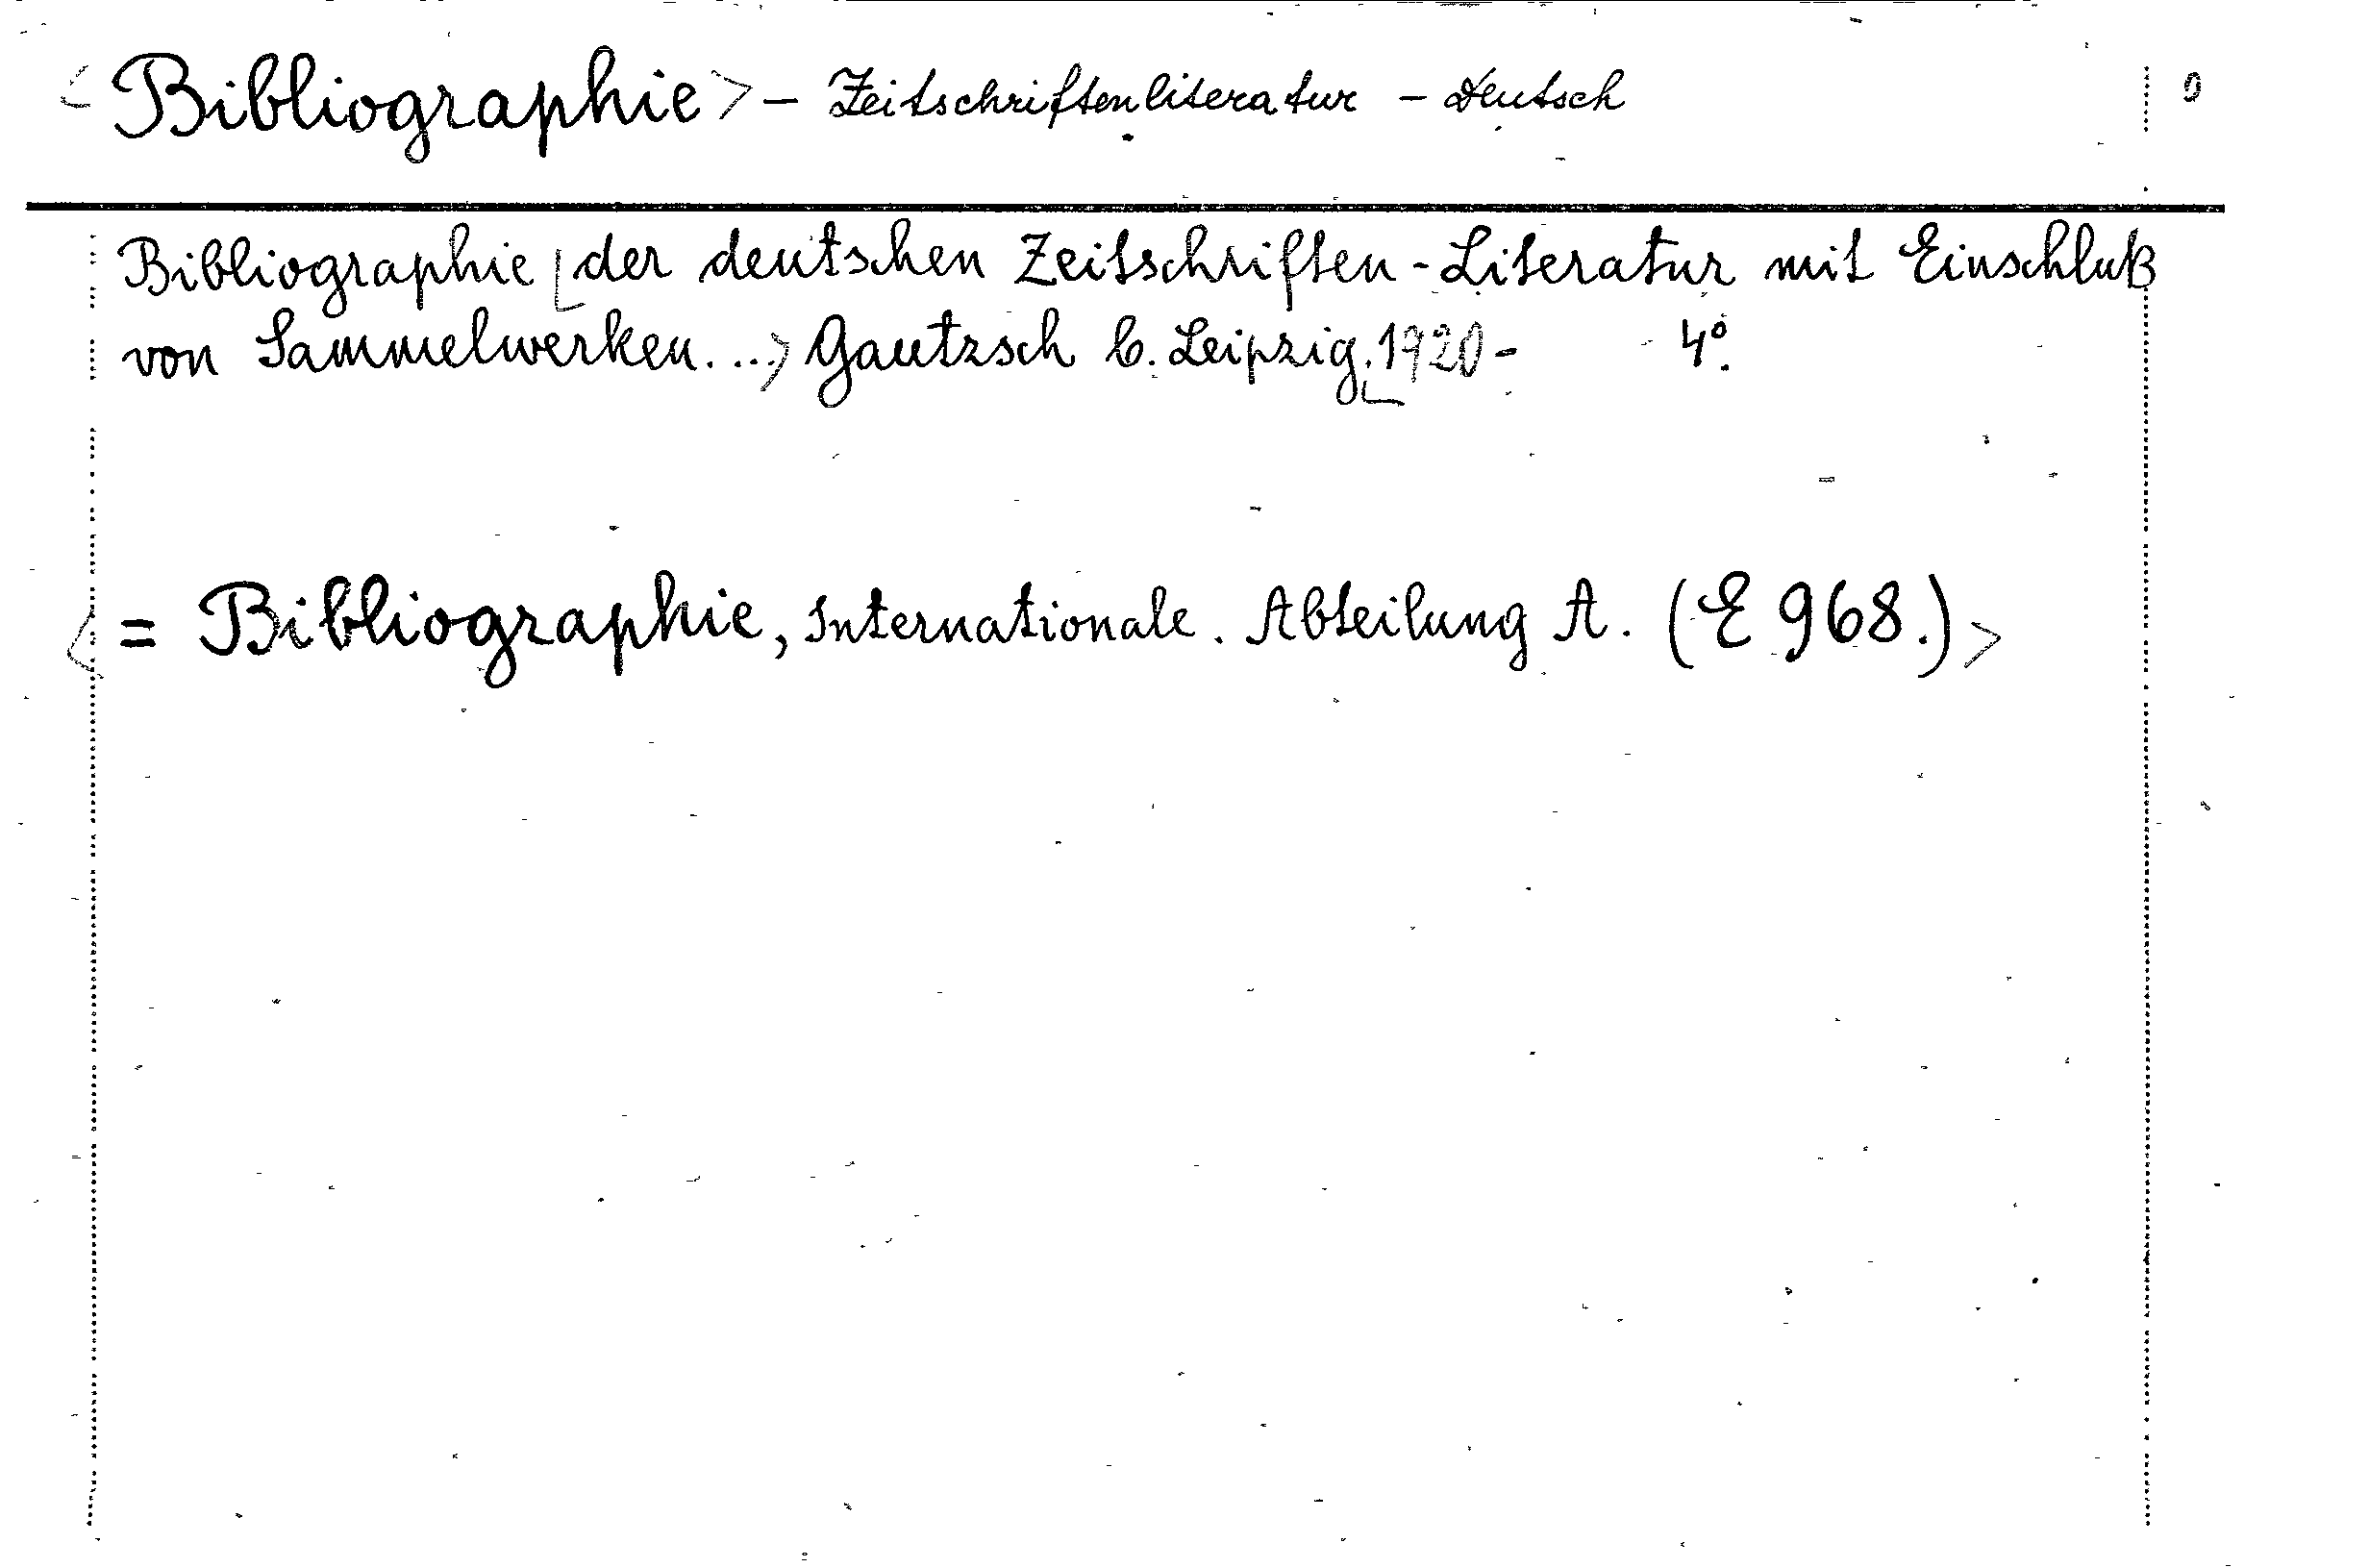 <Bibliographie> – Zeitschriftenliteratur – Deutsch 0
Bibliographie [der deutschen Zeitschriften-Literatur mit Einschluß
von Sammelwerken...> Gautzsch b. Leipzig. 1920- 4°.
<= Bibliographie, Internationale. Abteilung A. (E 968.)>